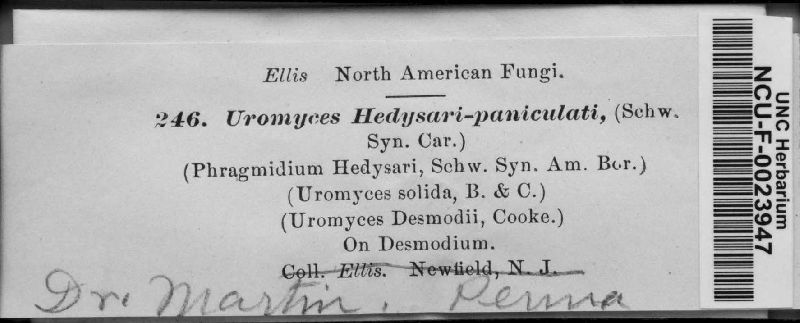 Ellis North American Fungi.
246. Uromyces Hedysari-paniculati, (Schw.
Syn. Car.)
(Phragmidium Hedysari, Schw. Syn. Am. Bor.)
(Uromyces solida, B. & C.)
(Uromyces Desmodii, Cooke.)
On Desmodium.
Coll. Ellis. Newfield, N. J.
Dr. Martin. Penna
UNC Herbarium
NCU-F-0023947